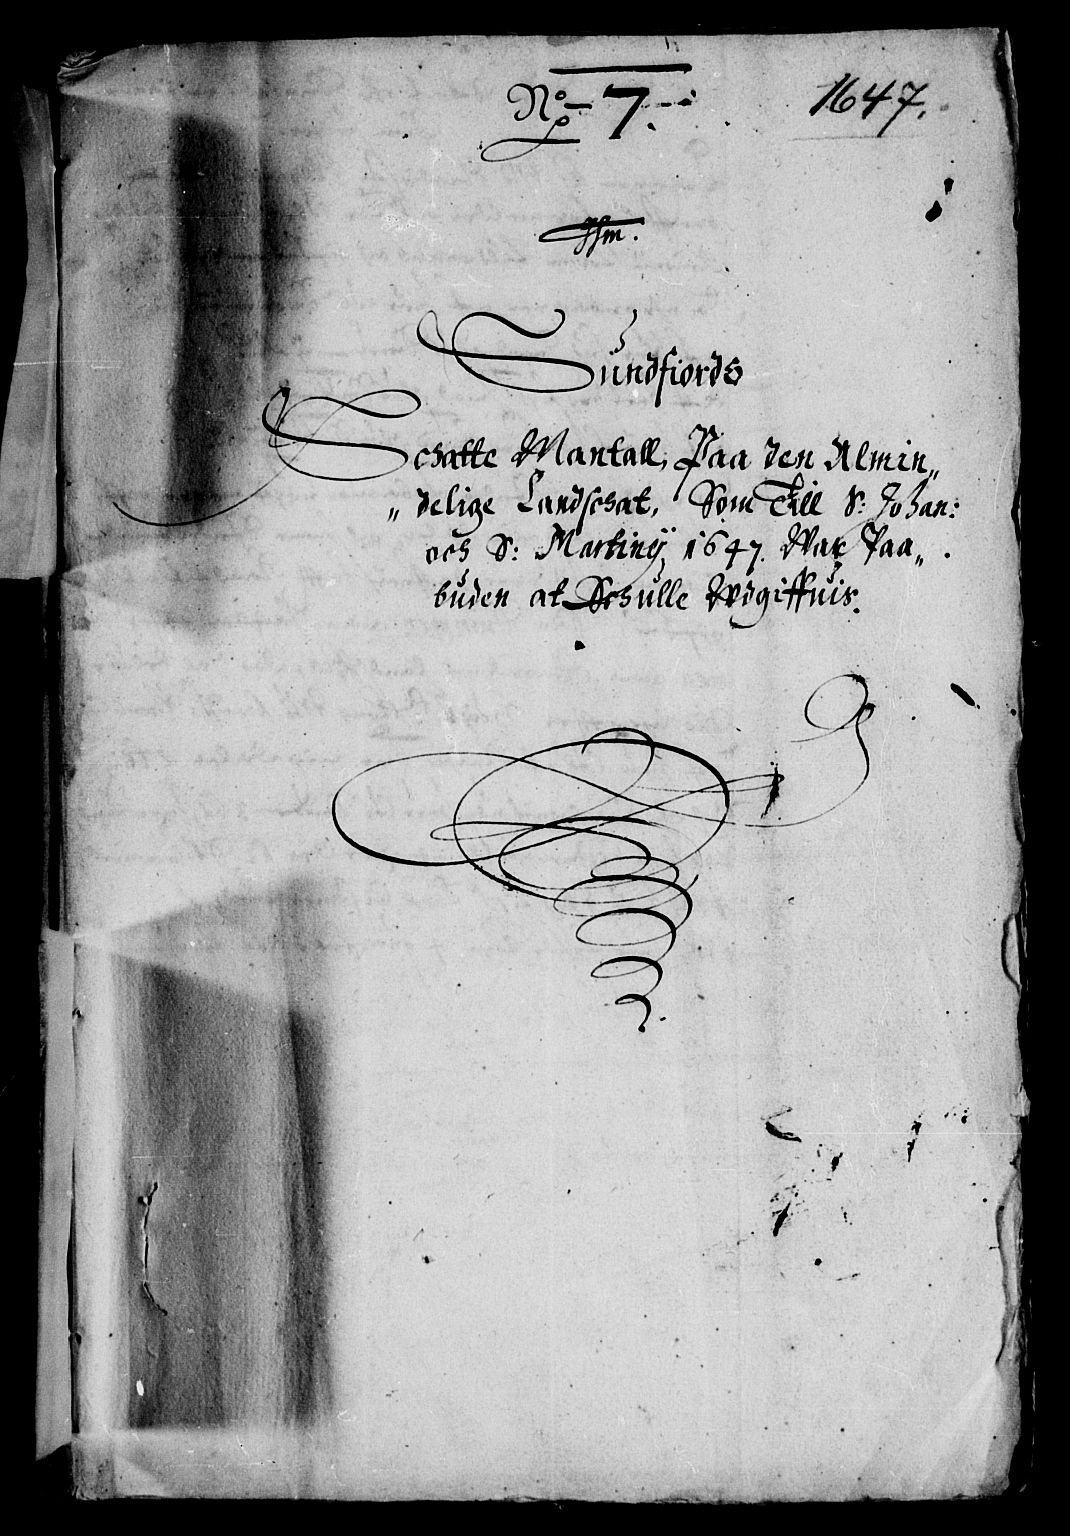 No 7.
1647.
Sundfiords
Schatte Mantall, Paa den Almin„
„delige Landschat, Som Till S: Johan:
och S: Martiny 1647. War Paa„
buden at Schulle Wdgiffuis.